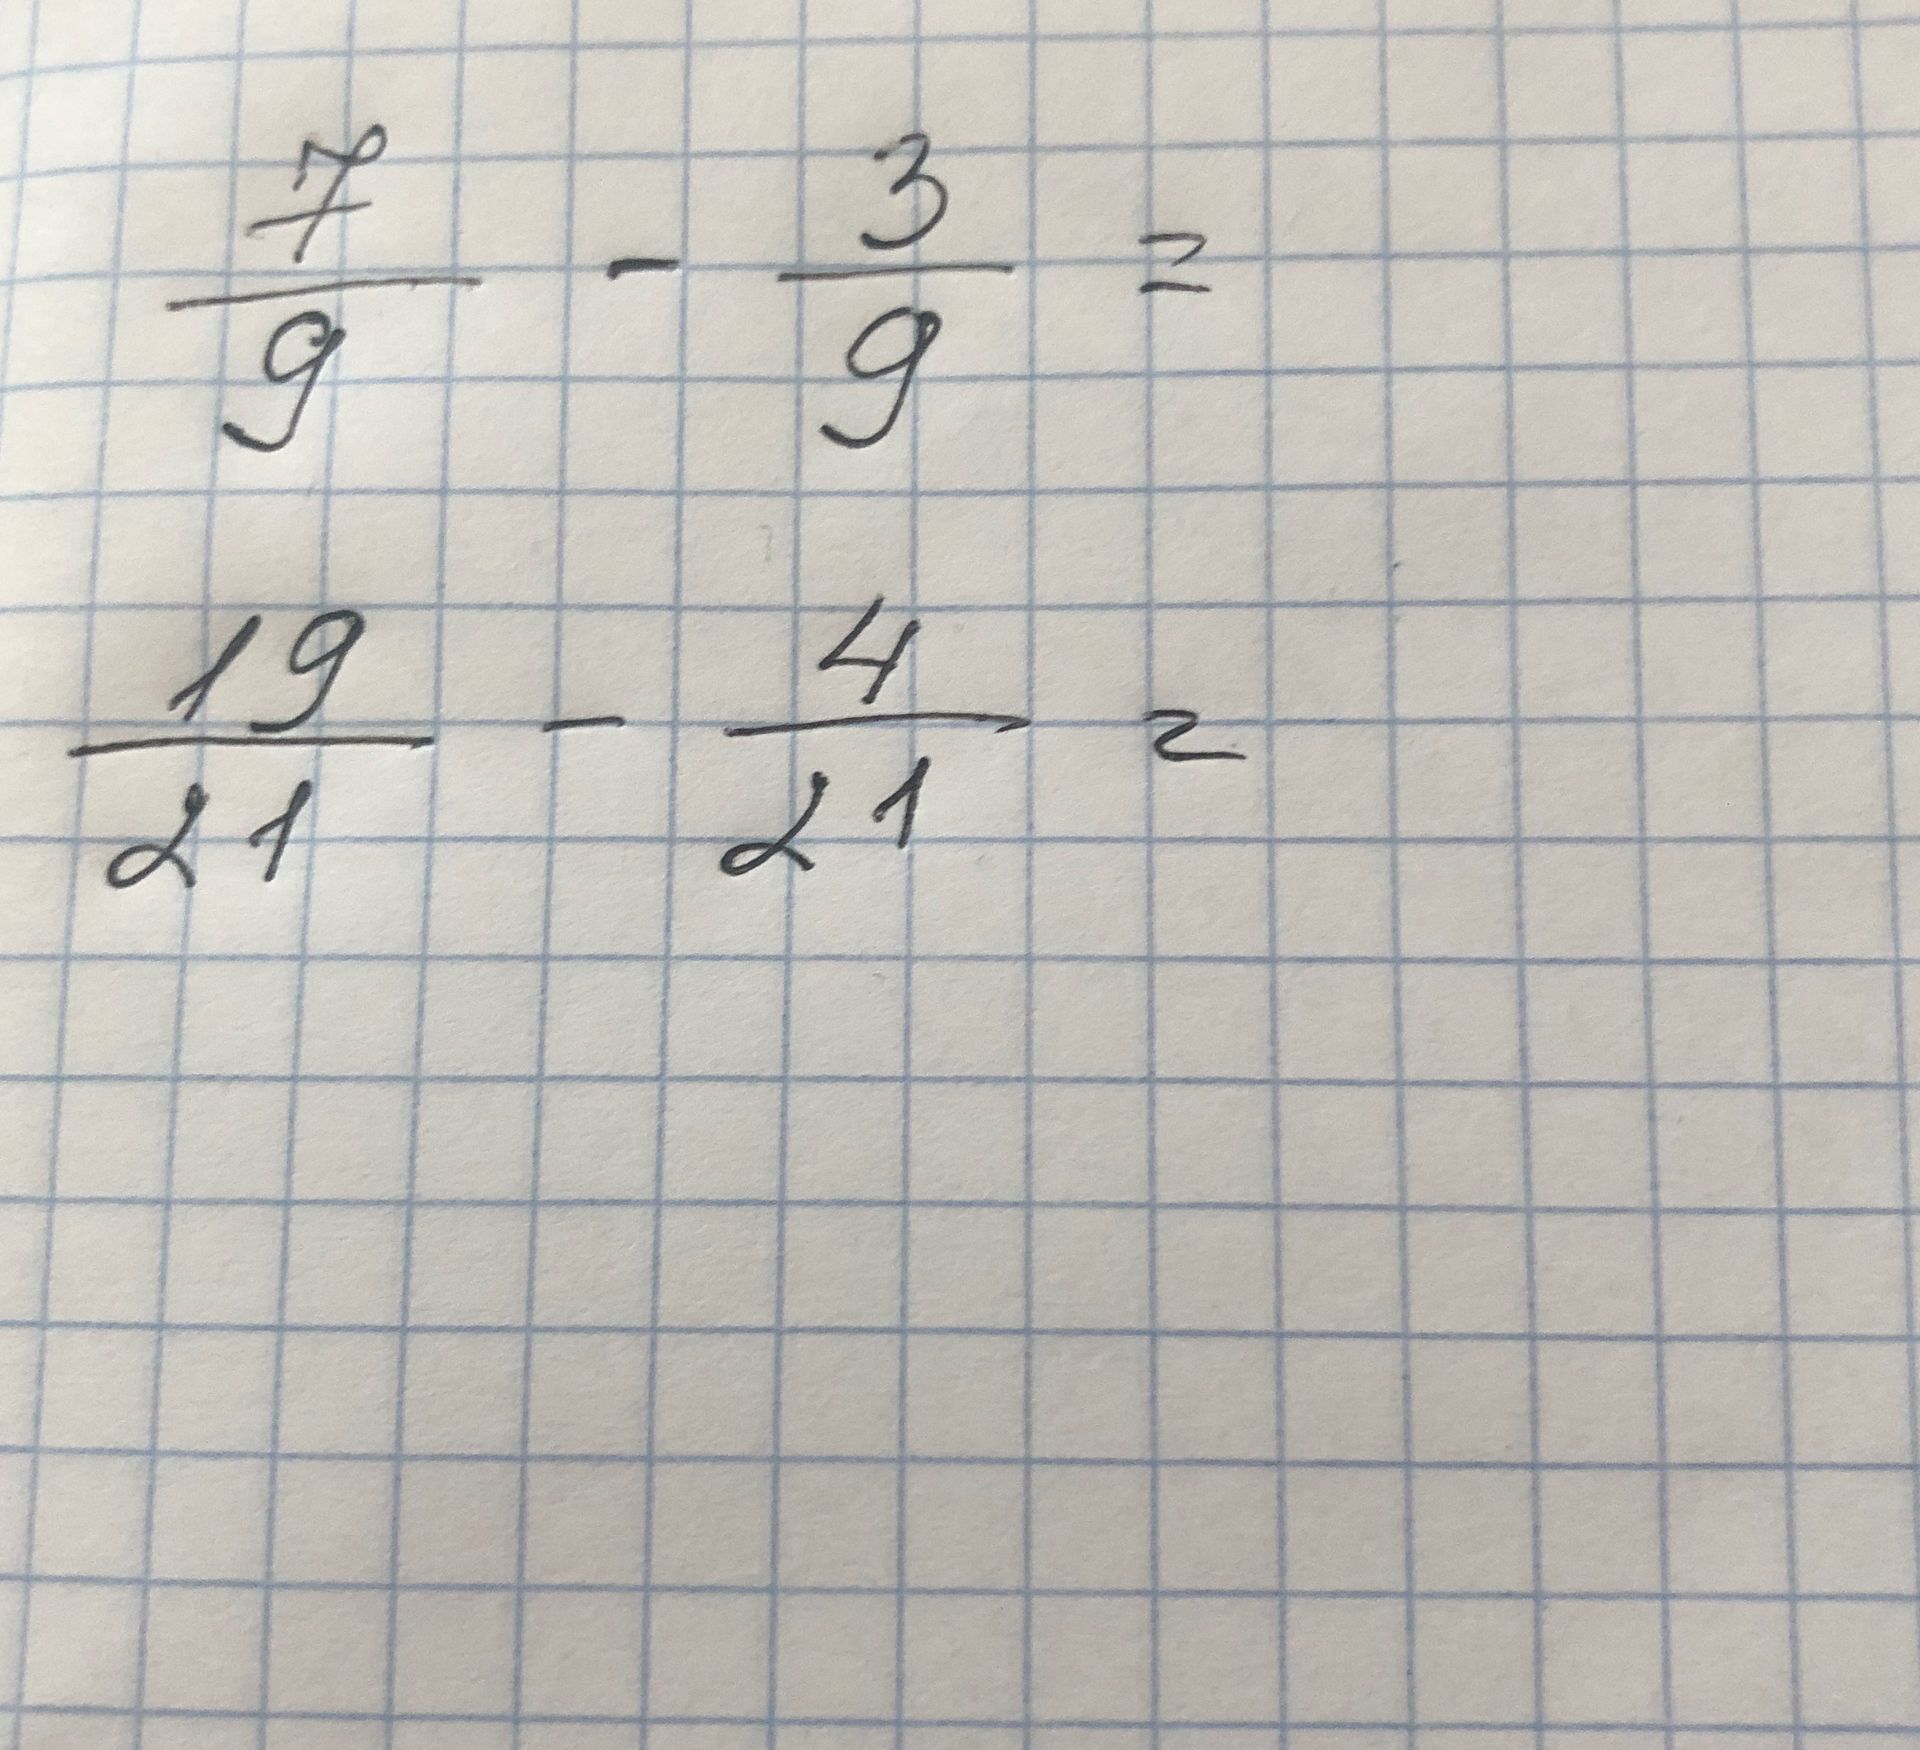 7/9 - 3/9 =
19/21 - 4/21 =